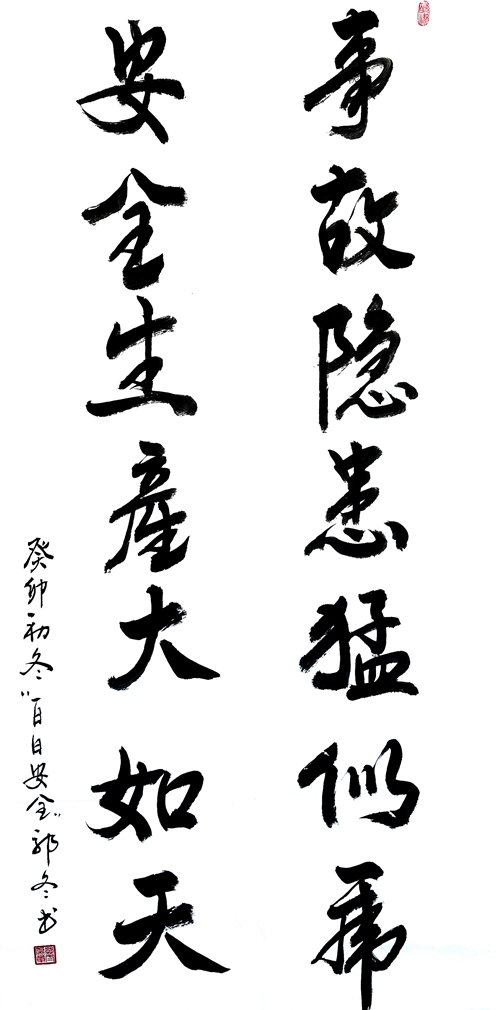 事故隐患猛似虎
安全生產大如天
癸卯初冬"百日安全"郭冬书